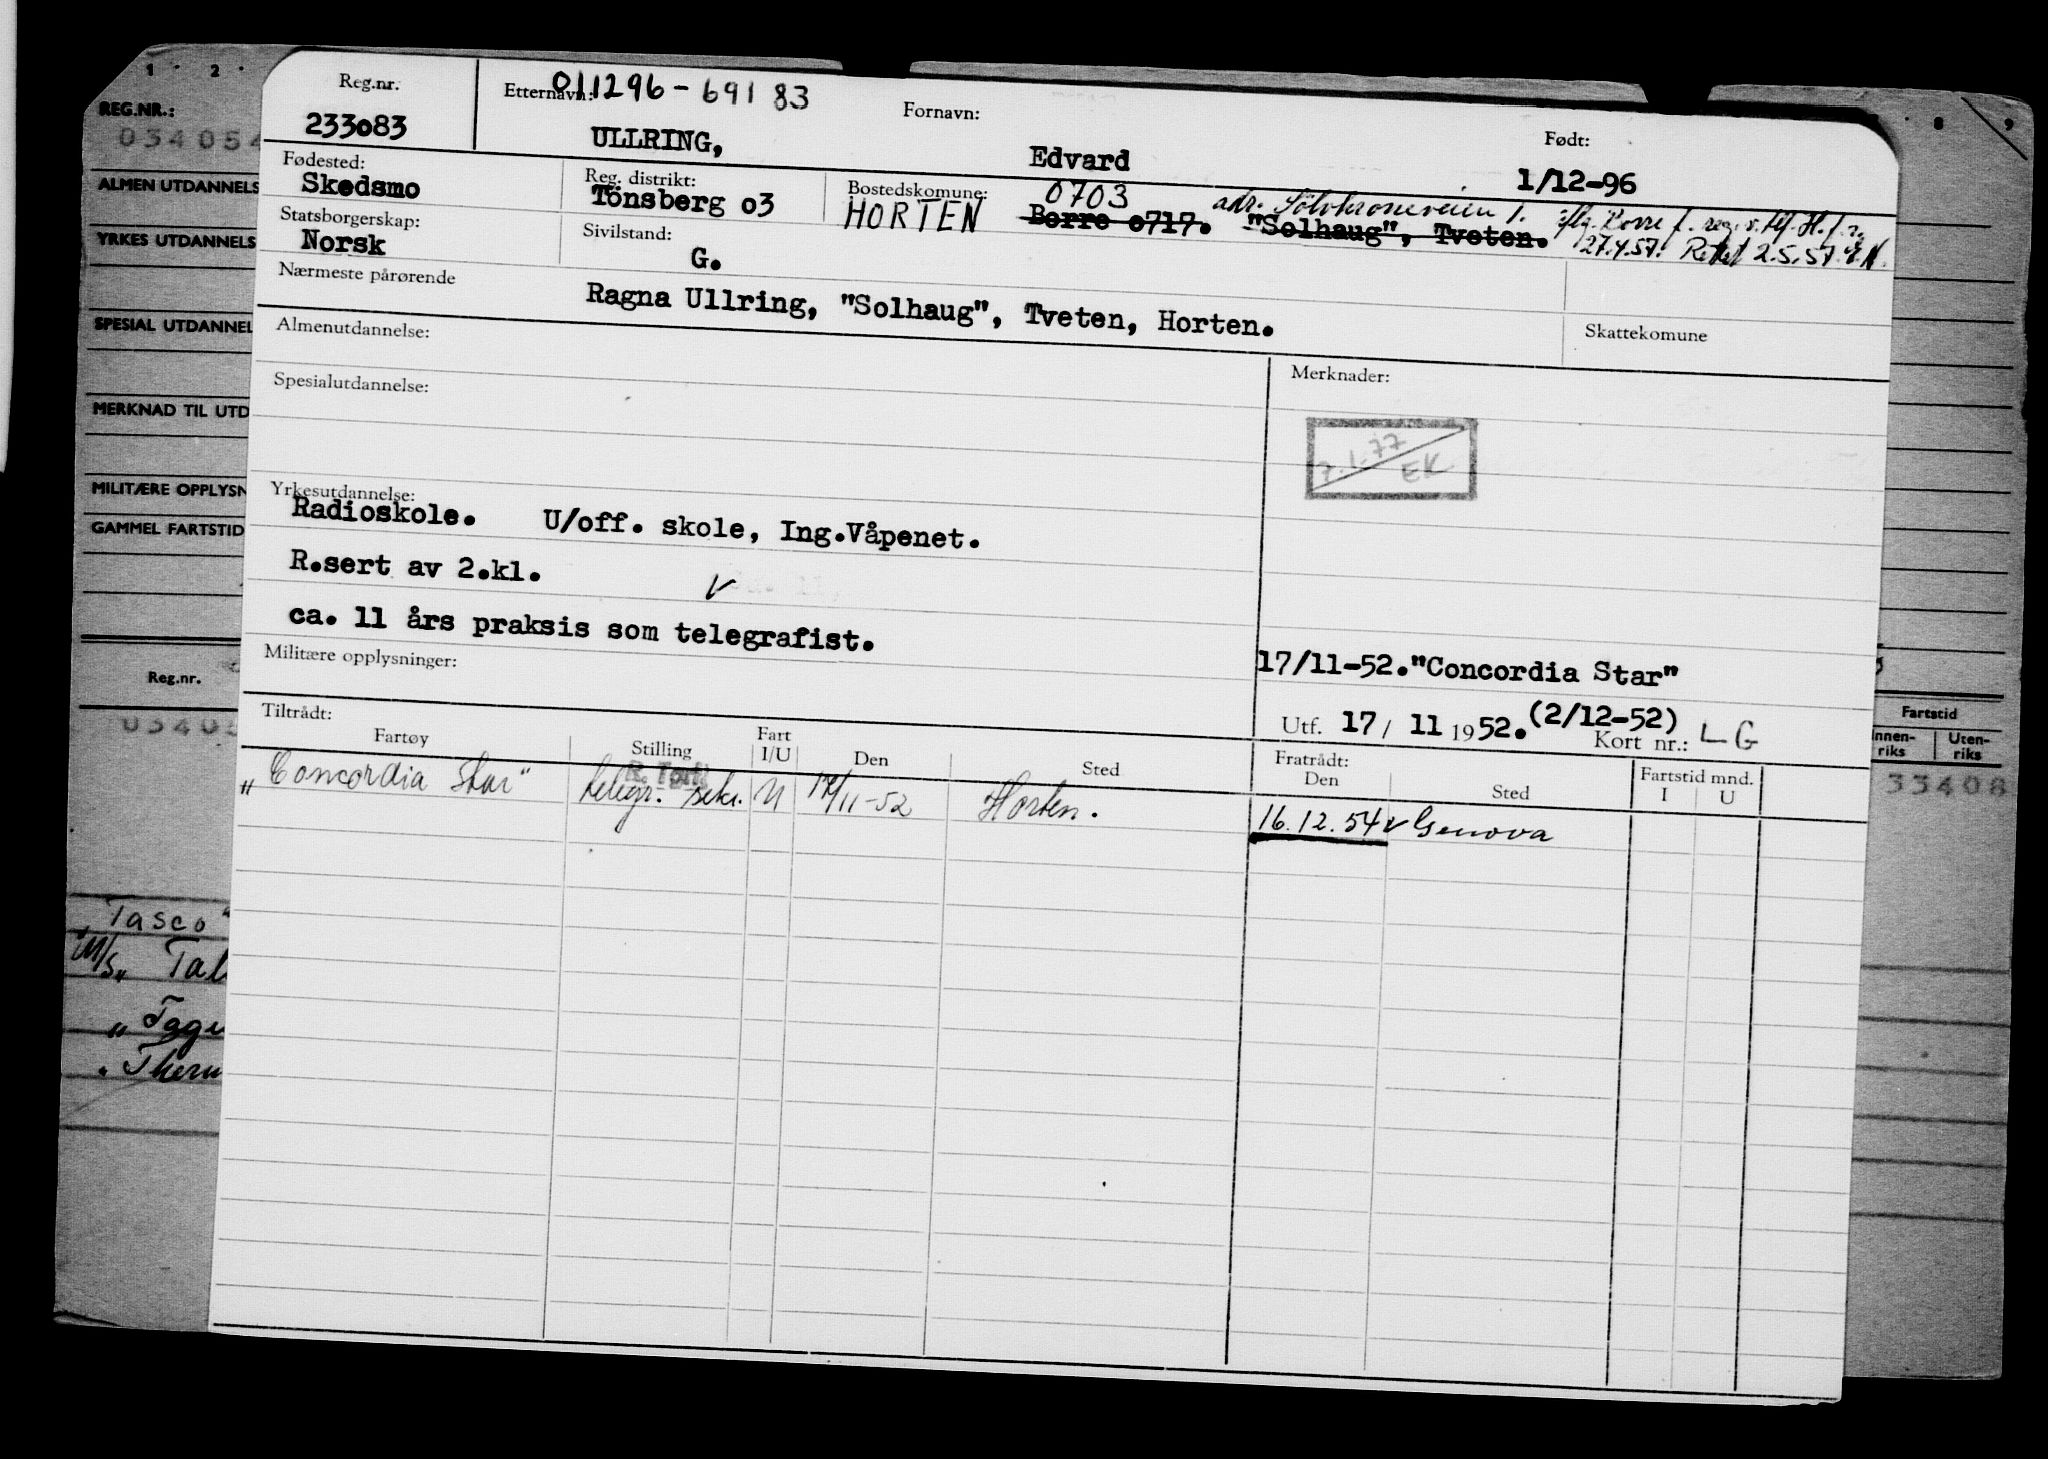 1 2 8 9
REG.NR.:
034054
ALMEN UTDANNELS
YRKES UTDANNELS
SPESIAL UTDANNEL
MERKNAD TIL UTD
MILITÆRE OPPLYSN
GAMMEL FARTSTID
Reg.nr.
03405
Tasco"
M/S„ Tal
„ Tagu
Fartstid
Innen-riks Uten-riks
33408
Reg.nr. Etternavn: 011296-691 83 Fornavn: Født:
233o83 ULLRING, Edvard 1/12-96
Fødested: Reg. distrikt: Bostedskomune: 0703 adr. Sölvkroneveien 1.
Skedsmo Tönsberg o3 HORTEN Borre o717. "Solhaug", Tveten.
27.4.57. Rettet 2.5.57.
Statsborgerskap: Sivilstand:
Norsk G.
Nærmeste pårørende
Ragna Ullring, "Solhaug", Tveten, Horten.
Skattekomune
Almenutdannelse:
Merknader:
Spesialutdannelse:
7.1.77
EK
Yrkesutdannelse:
Radioskole. U/off. skole, Ing.Våpenet.
R.sert av 2.kl.
ca. 11 års praksis som telegrafist.
Militære opplysninger:
17/11-52."Concordia Star"
Utf. 17/ 11 1952. (2/12-52) Kort nr.: LG
Tiltrådt:
Fartøy Stilling Fart I/U Den Sted
Fratrådt: Den Sted Fartstid mnd. I U
„Concordia Star" telegr. sekr. U 17/11-52 Horten. 16.12.54 Genova